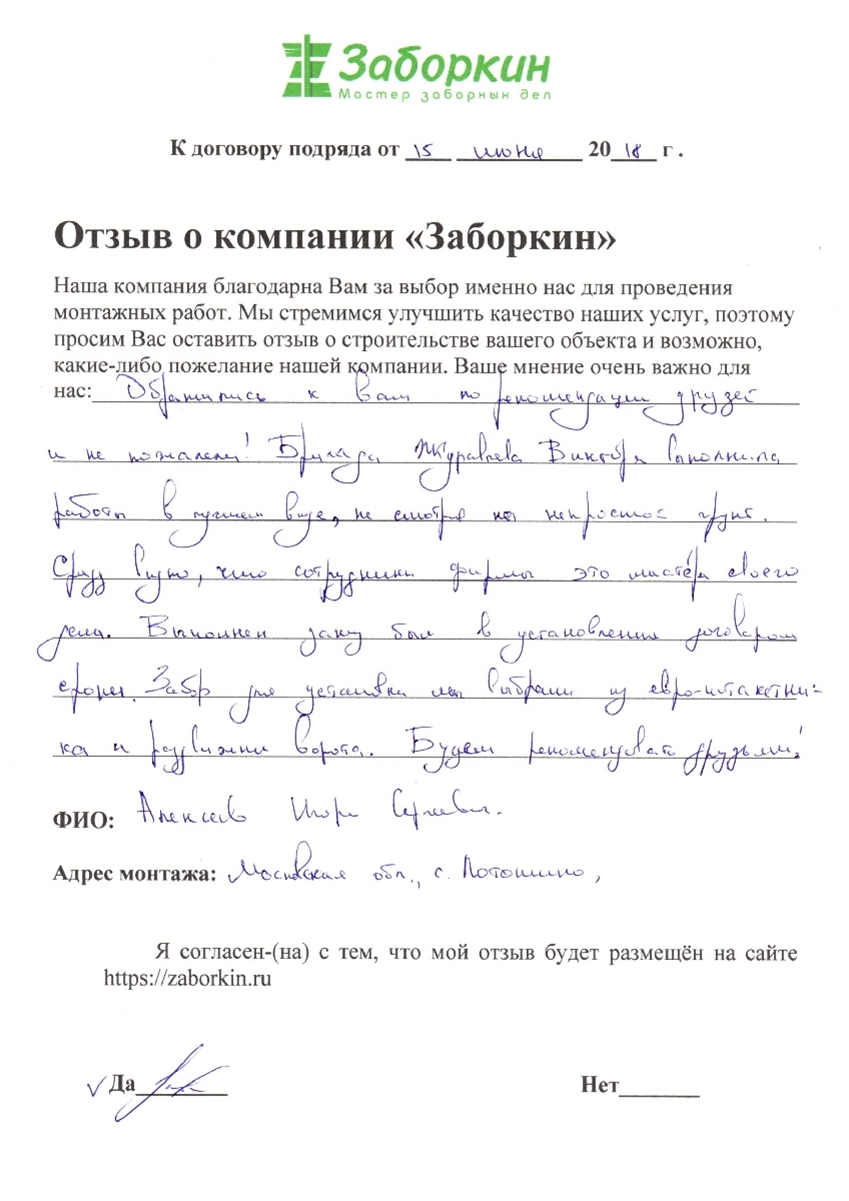 Заборкин
Мастер заборных дел
К договору подряда от 15 июня 2018 г .
Отзыв о компании «Заборкин»
Наша компания благодарна Вам за выбор именно нас для проведения
монтажных работ. Мы стремимся улучшить качество наших услуг, поэтому
просим Вас оставить отзыв о строительстве вашего объекта и возможно,
какие-либо пожелание нашей компании. Ваше мнение очень важно для
нас: Обратились к вам по рекомендации друзей
и не пожалели! Бригада Журавлева Виктора выполнила
работы в лучшем виде, не смотря на непростой грунт.
Сразу видно, что сотрудники фирмы это мастера своего
дела. Выполнен заказ был в установленные договором
сроки. Забор для установки мы выбрали из евро-штакетни-
ка и раздвижные ворота. Будем рекомендовать друзьям!
ФИО: Алексеев Игорь Сергеевич.
Адрес монтажа: Московская обл., с. Лотошино,
Я согласен-(на) с тем, что мой отзыв будет размещён на сайте
https://zaborkin.ru
✓ Да Нет